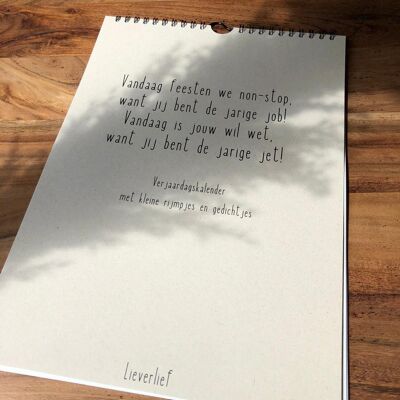 Vandaag feesten we non-stop,
want jij bent de jarige job!
Vandaag is jouw wil wet,
want jij bent de jarige jet!
Verjaardagskalender
met kleine rijmpjes en gedichtjes
Lieverlief